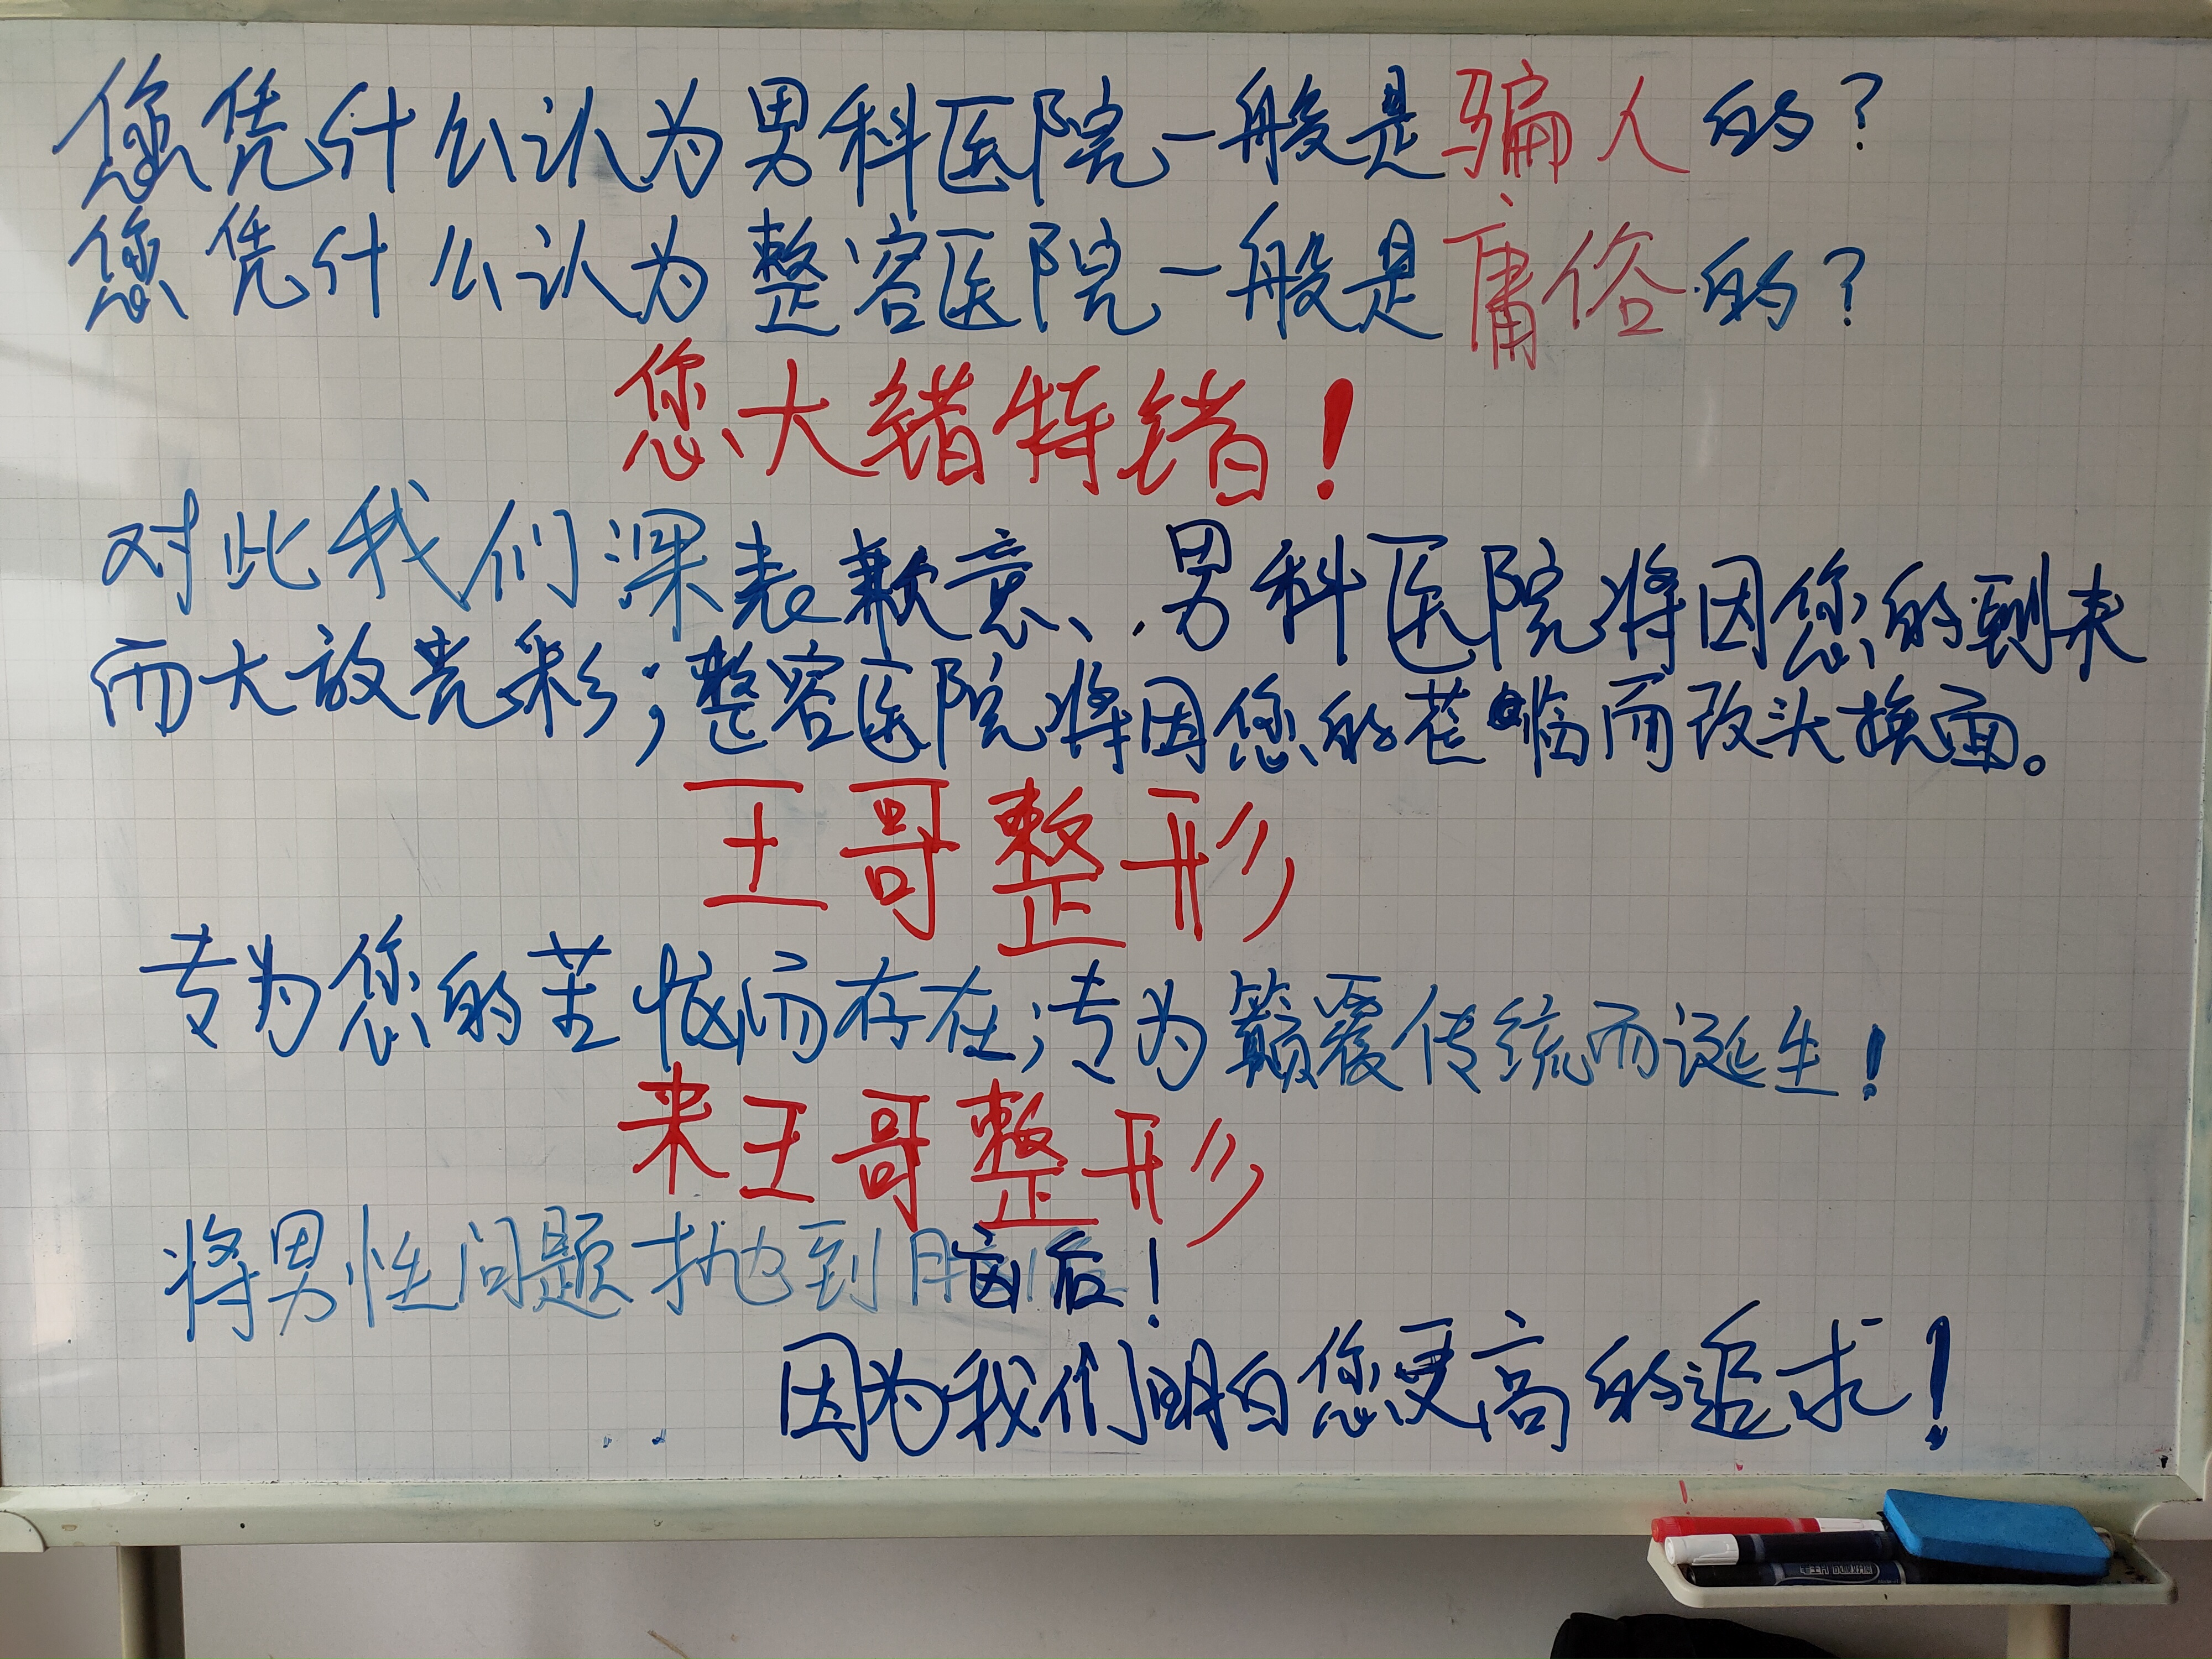 您凭什么认为男科医院一般是骗人的？
您凭什么认为整容医院一般是庸俗的？
您大错特错！
对此我们深表歉意、男科医院将因您的到来
而大放光彩；整容医院将因您的莅临而改头换面。
王哥整形
专为您的苦恼而存在；专为颠覆传统而诞生！
来王哥整形
将男性问题抛到脑后！
因为我们明白您更高的追求！